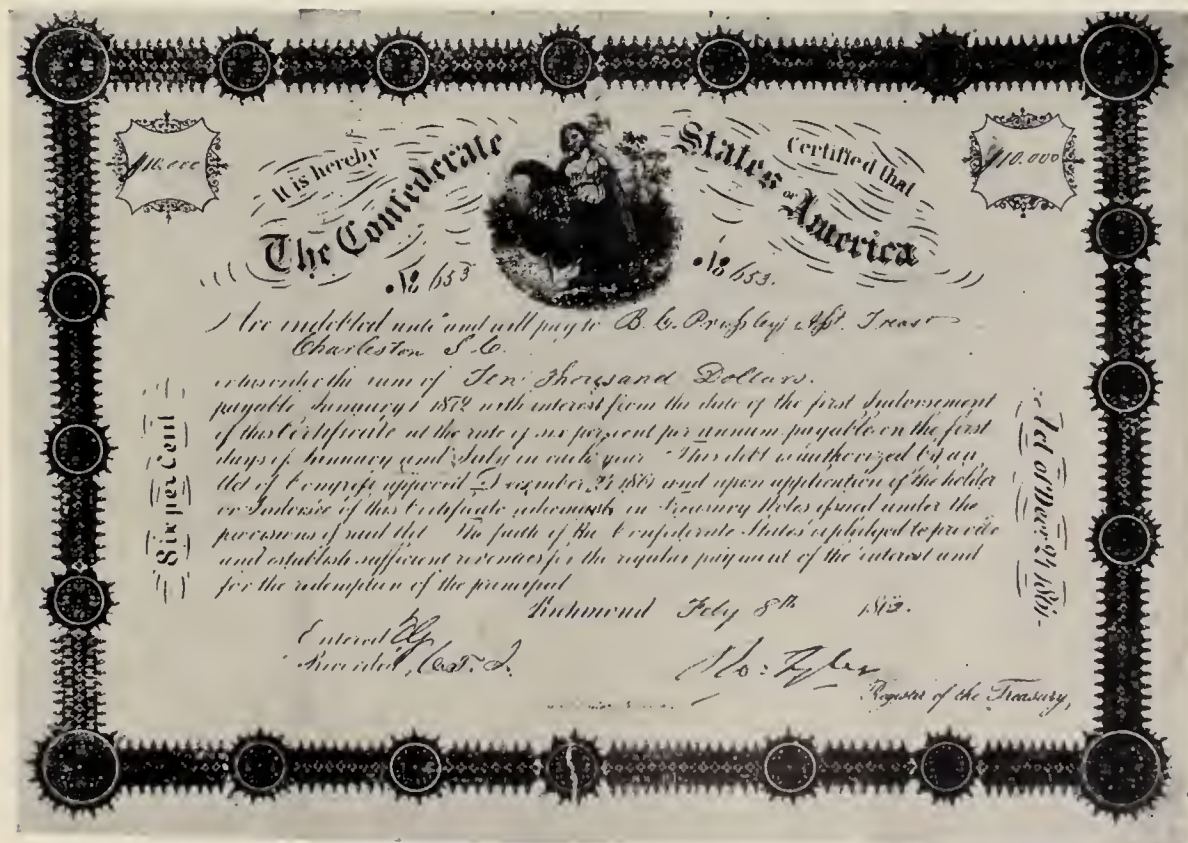 $10.000
It is hereby
Certified that
$10.000
The Confederate
States of America
No 653
No 653.
Are indebted unto and will pay to B. C. Pressley Asst. Treasr
Charleston S. C.
or his order the sum of Ten Thousand Dollars.
payable January 1 1872 with interest from the date of the first Indorsement
of this Certificate at the rate of six per cent per annum payable on the first
days of January and July in each year This debt is authorized by an
Act of Congress approved December 24 1861 and upon application of the holder
or Indorsee of this Certificate in Treasury Notes issued under the
provisions of said Act The faith of the Confederate States is pledged to provide
and establish sufficient revenues for the regular payment of the interest and
for the redemption of the principal
Richmond Feby 8th 1862.
Entered
Recorded
Jno: Tyler
Register of the Treasury,
Six per Cent
Act of Decr 24 1861.